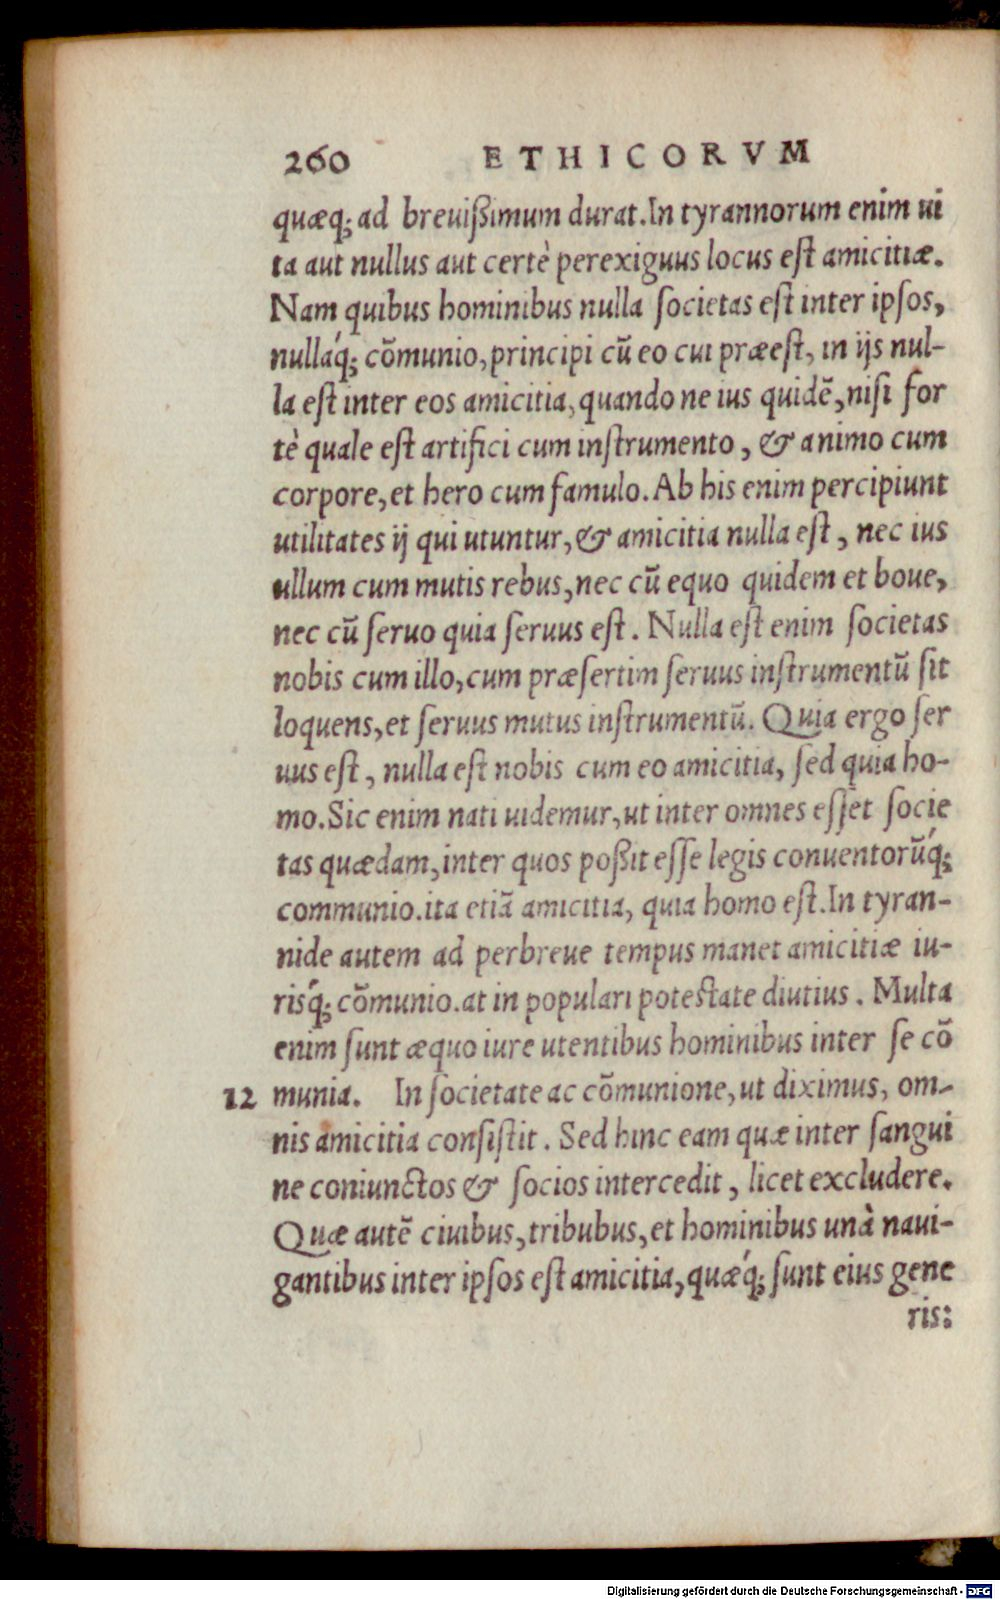 260 ETHICORVM
quæq; ad breuißimum durat. In tyrannorum enim ui
ta aut nullus aut certè perexiguus locus est amicitiæ.
Nam quibus hominibus nulla societas est inter ipsos,
nullaq́; cõmunio, principi cũ eo cui præest, in ijs nul-
la est inter eos amicitia, quando ne ius quidẽ, nisi for
tè quale est artifici cum instrumento, & animo cum
corpore, et hero cum famulo. Ab his enim percipiunt
utilitates ij qui utuntur, & amicitia nulla est, nec ius
ullum cum mutis rebus, nec cũ equo quidem et boue,
nec cũ seruo quia seruus est. Nulla est enim societas
nobis cum illo, cum præsertim seruus instrumentũ sit
loquens, et seruus mutus instrumentũ. Quia ergo ser
uus est, nulla est nobis cum eo amicitia, sed quia ho-
mo. Sic enim nati uidemur, ut inter omnes esset socie
tas quædam, inter quos poßit esse legis conuentorũq́;
communio. ita etiã amicitia, quia homo est. In tyran-
nide autem ad perbreue tempus manet amicitiæ iu-
risq́; cõmunio. at in populari potestate diutius. Multa
enim sunt æquo iure utentibus hominibus inter se cõ
12 munia. In societate ac cõmunione, ut diximus, om-
nis amicitia consistit. Sed hinc eam quæ inter sangui
ne coniunctos & socios intercedit, licet excludere.
Quæ autẽ ciuibus, tribubus, et hominibus unà naui-
gantibus inter ipsos est amicitia, quæq́; sunt eius gene
ris:
Digitalisierung gefördert durch die Deutsche Forschungsgemeinschaft - DFG